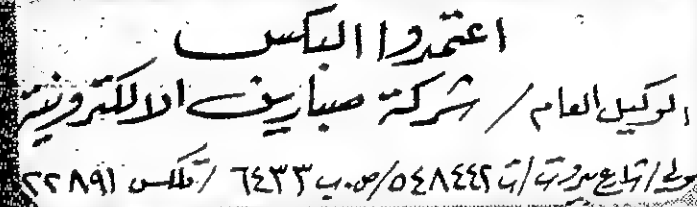 اعتمدوا البكس
الوكيل العام / شركة صباريف الالكترونية
شارع بيروت / ت ٥٤٨٤٤٢ / ص.ب ٦٤٣٣ / تلكس ٢٢٨٩١